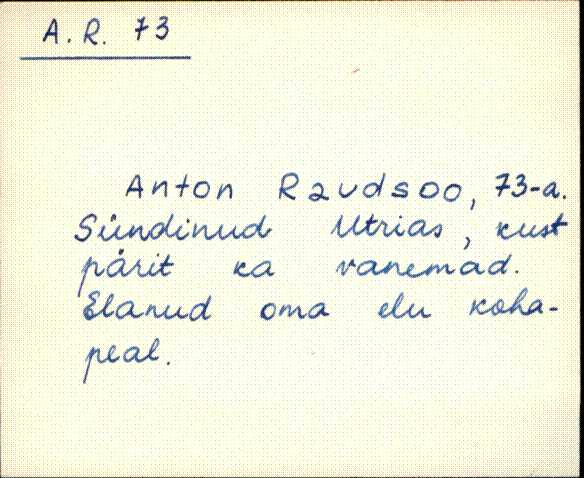 A. R. 73
Anton Raudsoo, 73-a.
Sündinud Utrias, kust
pärit ka vanemad.
Elanud oma elu koha-
peal.